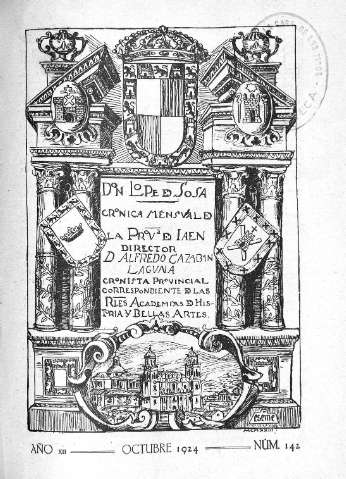 DON LOPE DE SOSA
CRONICA MENSVAL DE
LA PROVª DE JAEN
DIRECTOR
D. ALFREDO CAZABAN
LAGUNA
CRONISTA PROVINCIAL
CORRESPONDIENTE DE LAS
RLES ACADEMIAS DE HIS-
TORIA Y BELLAS ARTES.
AÑO XII OCTUBRE 1924 NÚM. 142